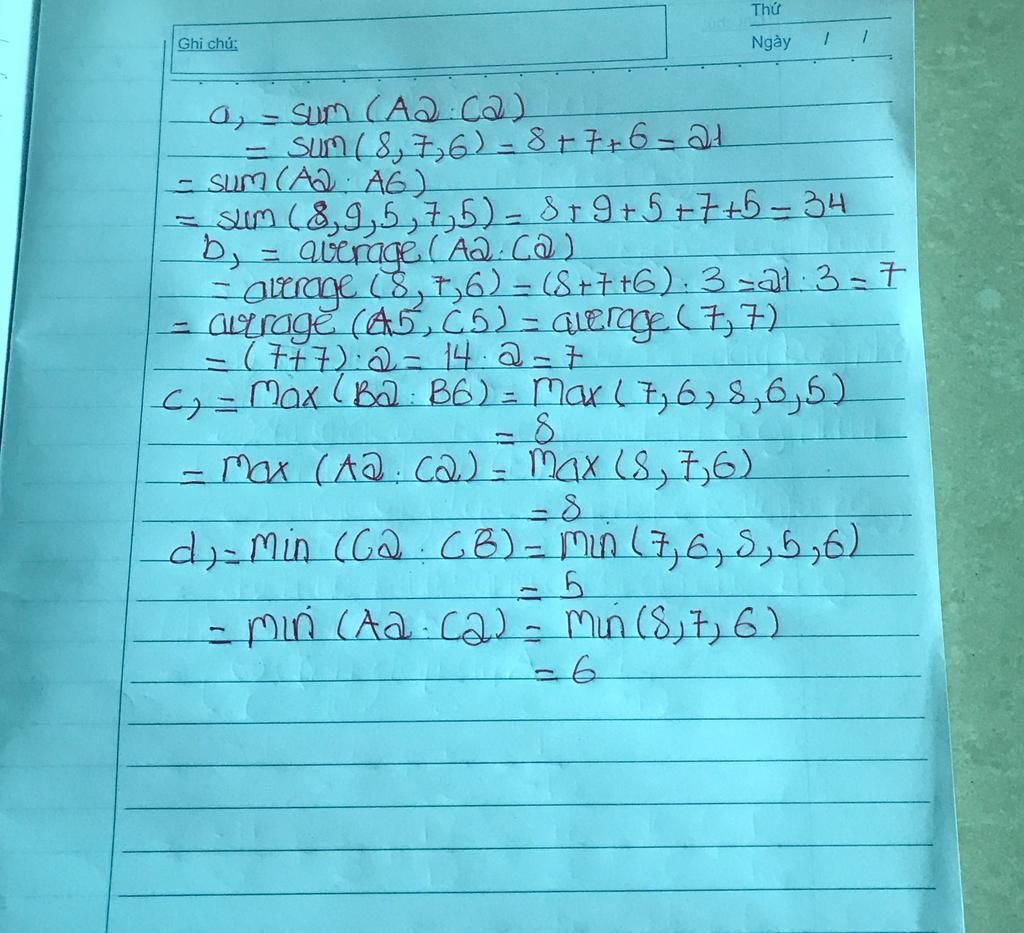 Thứ
Ghi chú:
Ngày / /
a, = sum (A2 : C2)
= sum (8, 7, 6) = 8 + 7 + 6 = 21
= sum (A2 : A6)
= sum (8, 9, 5, 7, 5) = 8 + 9 + 5 + 7 + 5 = 34
b, = average (A2 : C2)
= average (8, 7, 6) = (8+7+6) : 3 = 21 : 3 = 7
= average (A5, C5) = average (7, 7)
= (7+7) : 2 = 14 : 2 = 7
c, = Max (B2 : B6) = Max (7, 6, 8, 6, 5)
= 8
= Max (A2 : C2) = Max (8, 7, 6)
= 8
d, = Min (C2 : C6) = Min (7, 6, 8, 5, 6)
= 5
= Min (A2 : C2) = Min (8, 7, 6)
= 6